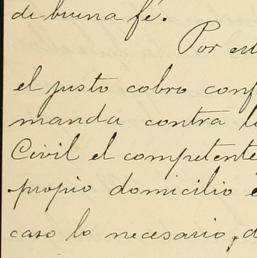 de buena fé.
Por
el justo cobro
manda contra
Civil el competente
propio domicilio
caso lo necesario,